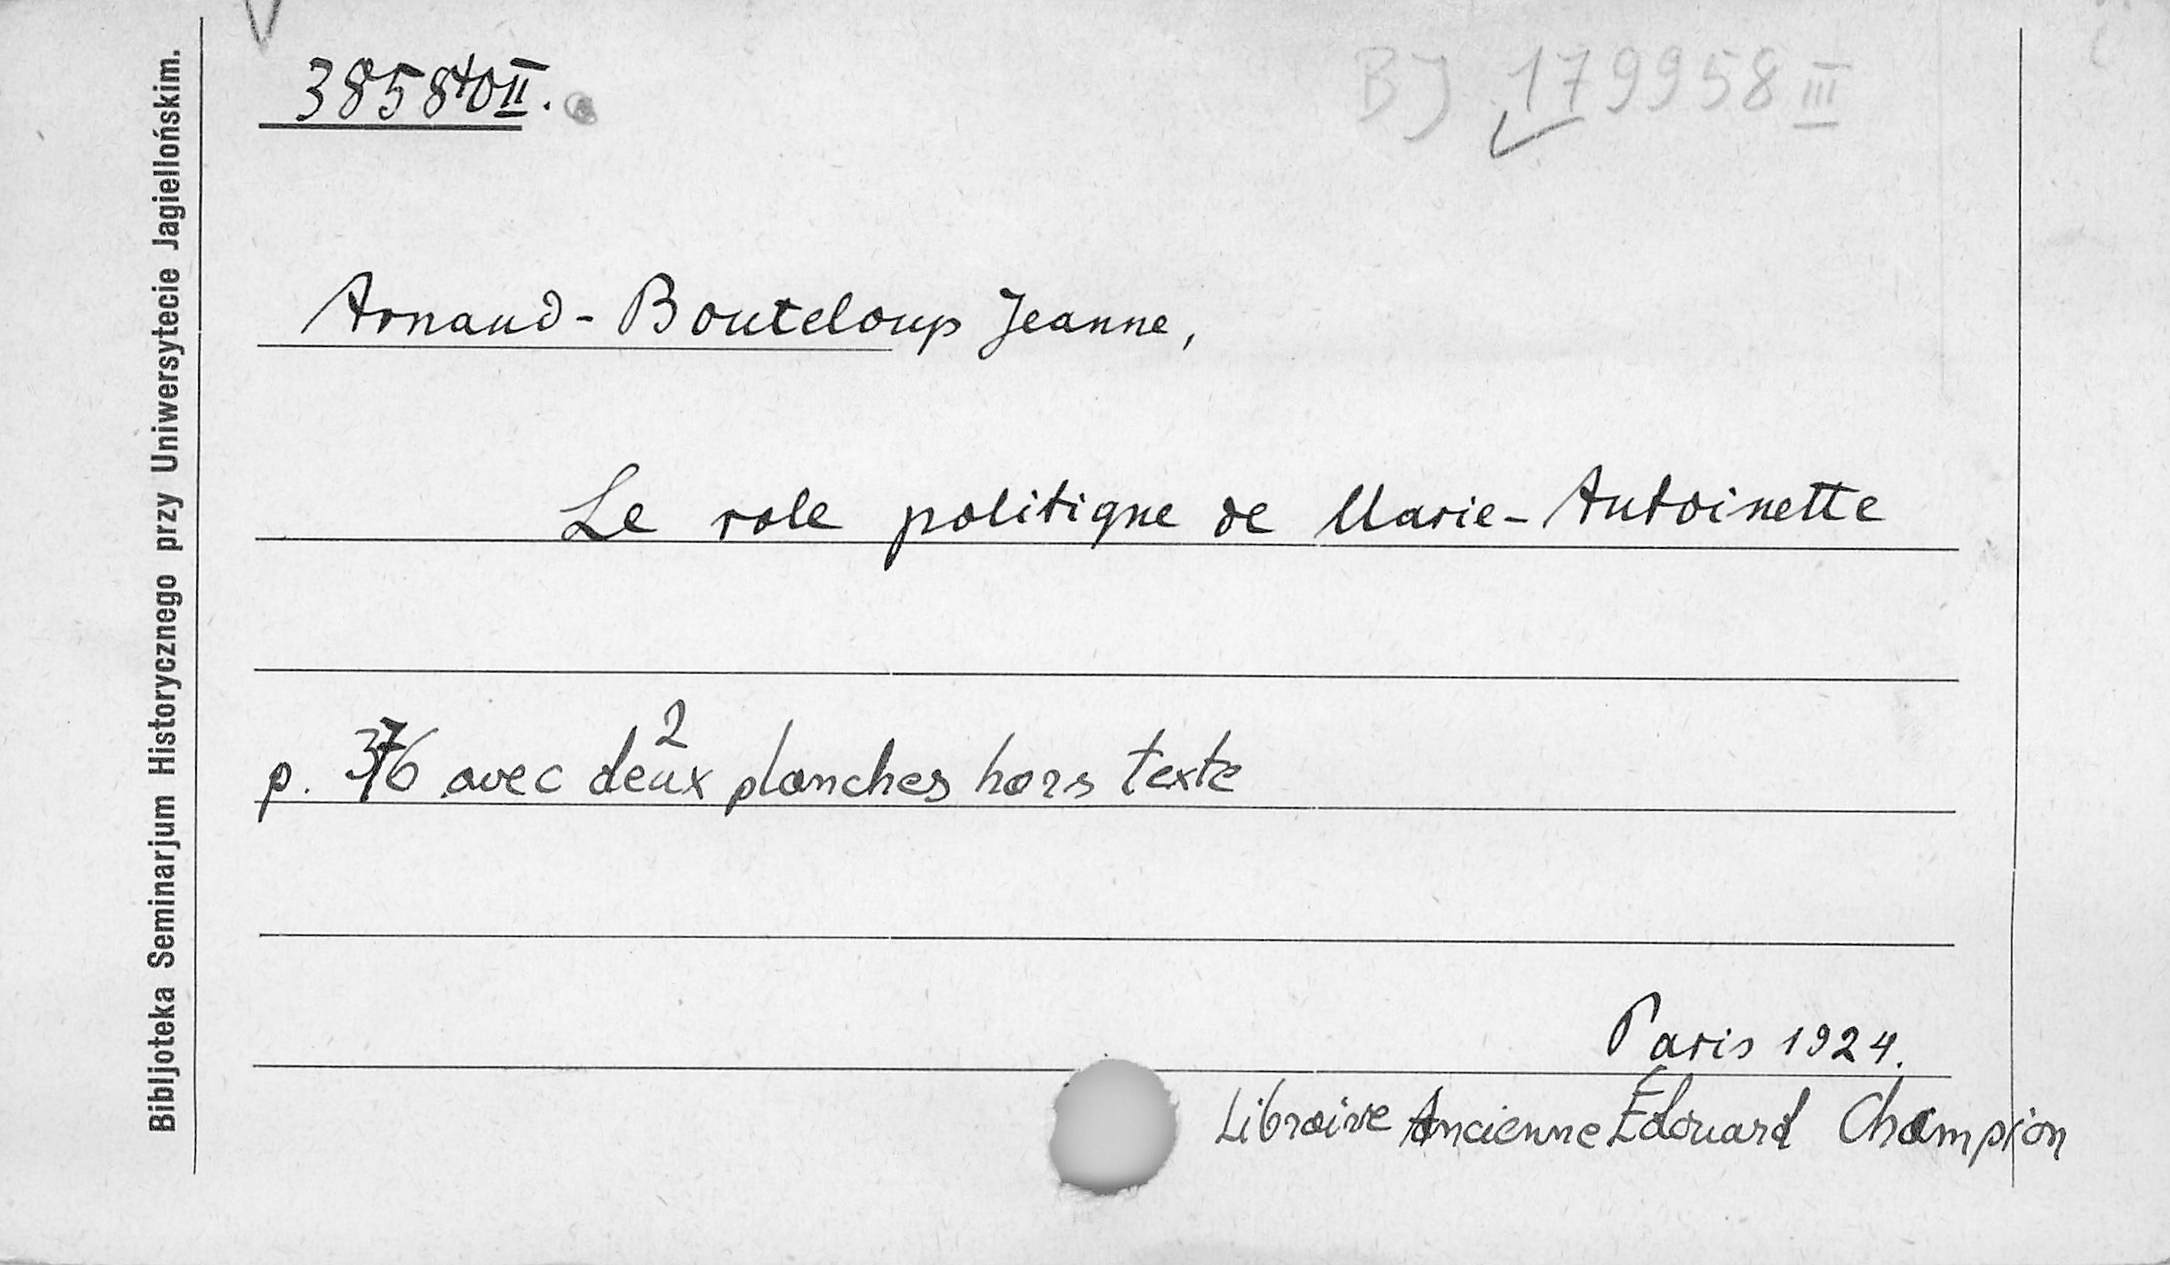 38540 II.
BJ 179958 III
Arnaud-Bouteloup Jeanne,
Le role politique de Marie-Antoinette
2
p. 376 avec deux planches hors texte
Paris 1924.
Libraire Ancienne Édouard Champion
Bibljoteka Seminarjum Historycznego przy Uniwersytecie Jagiellońskim.